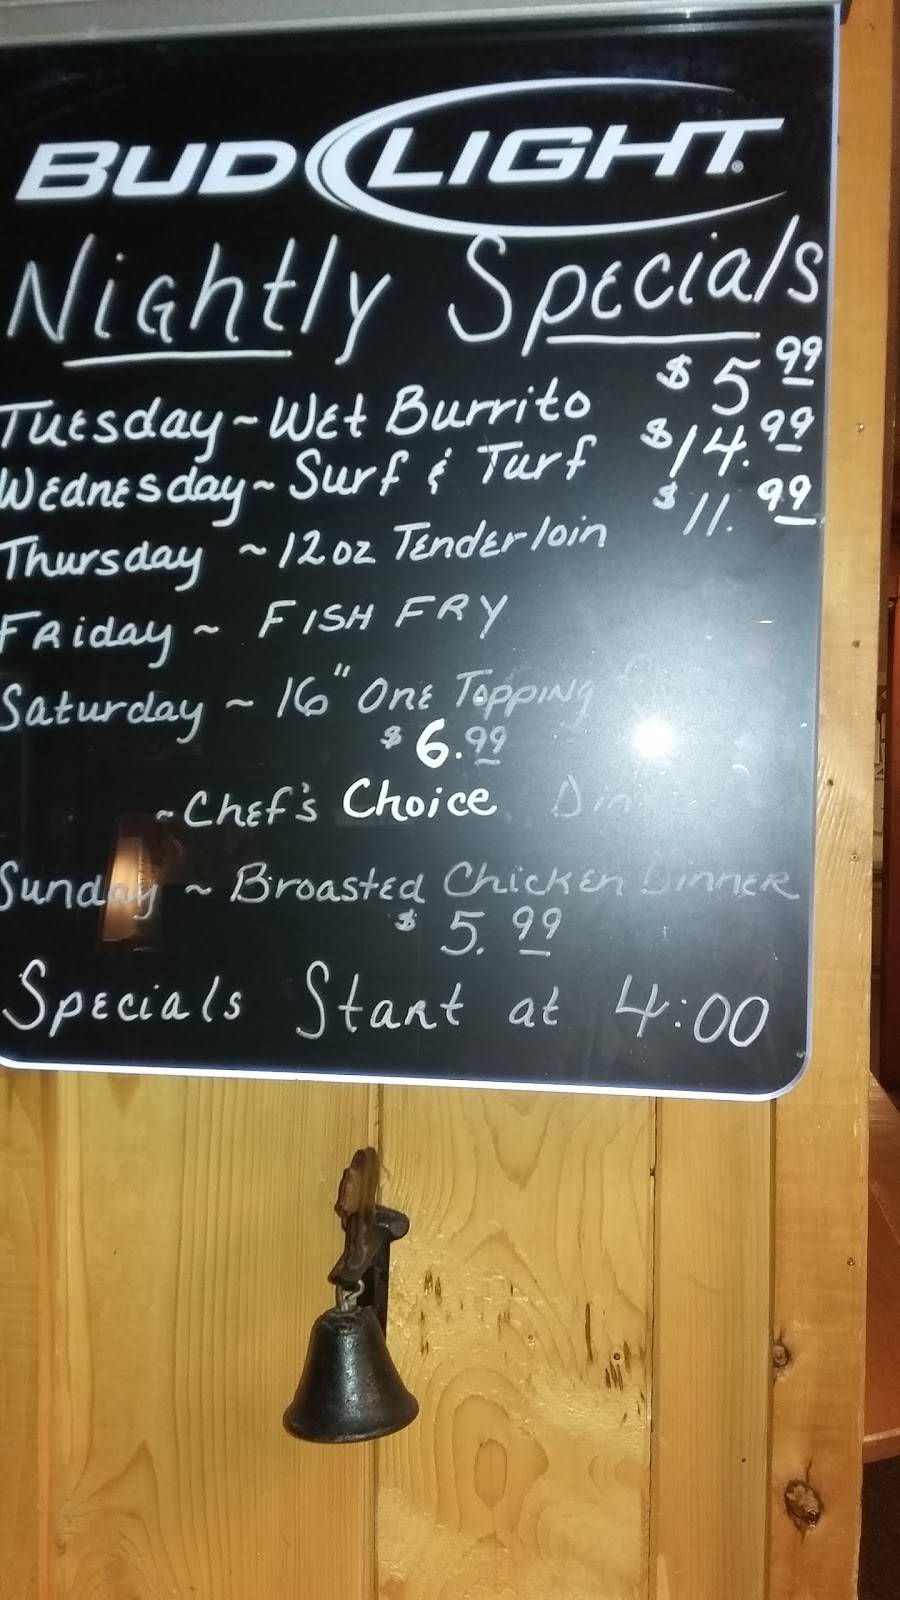 BUD LIGHT®
Nightly Specials
Tuesday ~ Wet Burrito $5 99
Wednesday ~ Surf & Turf $14.99
Thursday ~ 12oz Tenderloin $11.99
Friday ~ FISH FRY
Saturday ~ 16" One Topping
$6.99
~ Chef's Choice
Sunday ~ Broasted Chicken Dinner
$5.99
Specials Start at 4:00